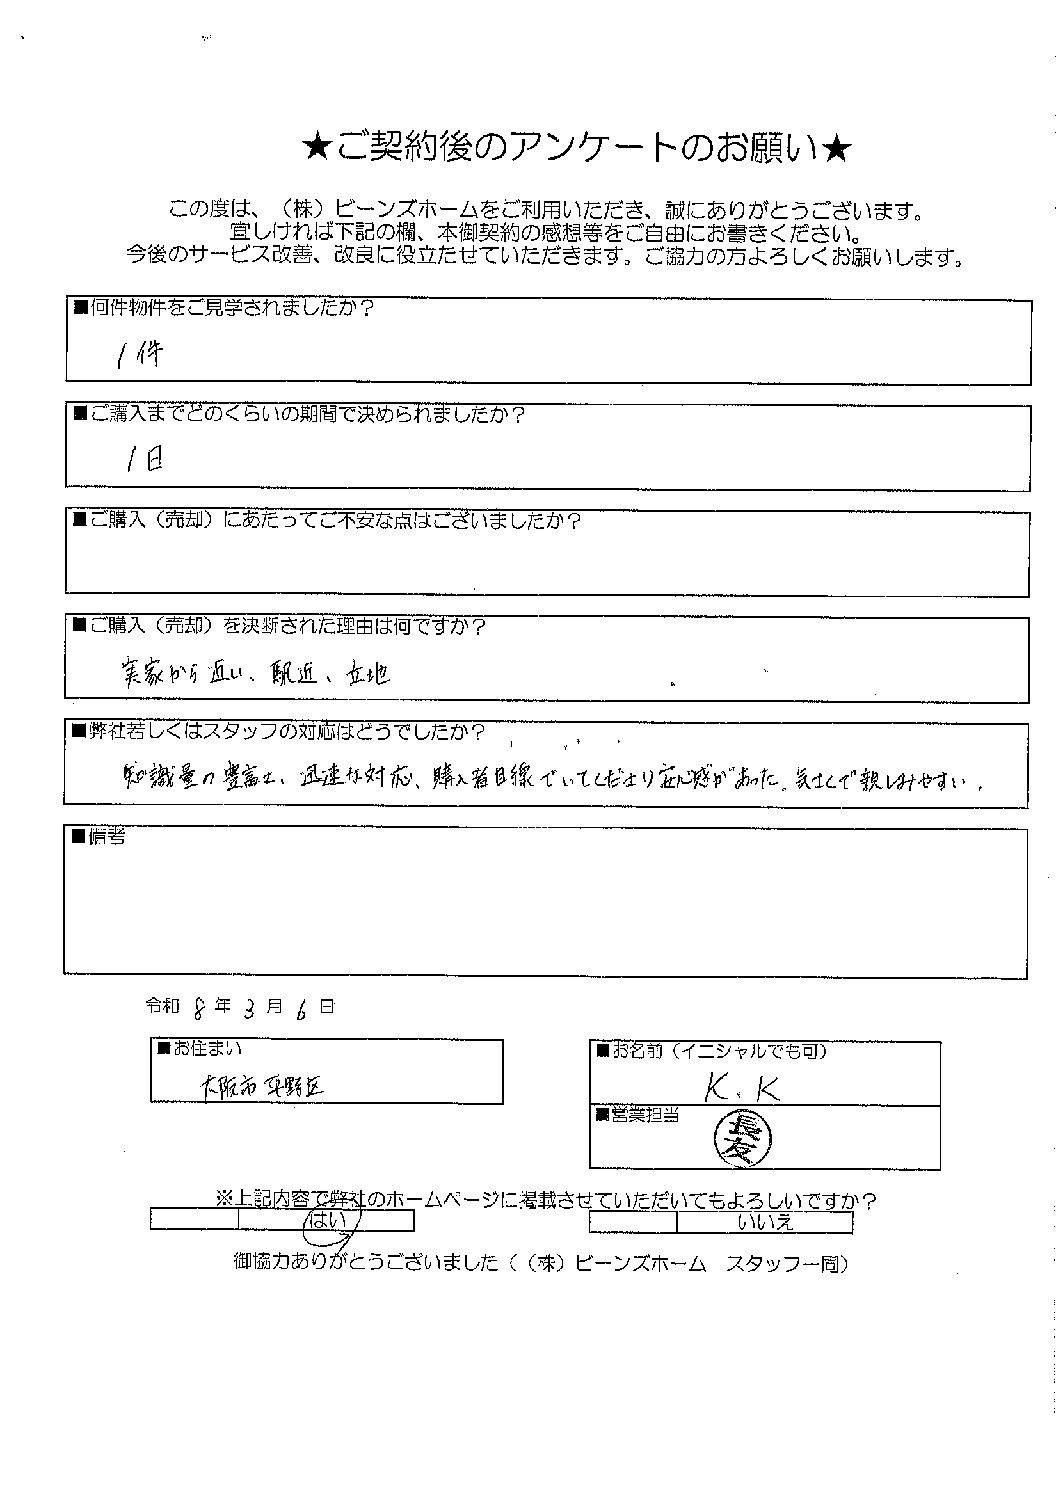 ★ご契約後のアンケートのお願い★
この度は、（株）ビーンズホームをご利用いただき、誠にありがとうございます。
宜しければ下記の欄、本御契約の感想等をご自由にお書きください。
今後のサービス改善、改良に役立たせていただきます。ご協力の方よろしくお願いします。
■何件物件をご見学されましたか？
1件
■ご購入までどのくらいの期間で決められましたか？
1日
■ご購入（売却）にあたってご不安な点はございましたか？
■ご購入（売却）を決断された理由は何ですか？
実家から近い、駅近、立地
■弊社若しくはスタッフの対応はどうでしたか？
知識量の豊富さ、迅速な対応、購入者目線でいてくださり安心感があった。気さくで親しみやすい。
■備考
令和 8 年 3 月 6 日
■お住まい
大阪市平野区
■お名前（イニシャルでも可）
K.K
■営業担当
長友
※上記内容で弊社のホームページに掲載させていただいてもよろしいですか？
はい いいえ
御協力ありがとうございました（（株）ビーンズホーム　スタッフ一同）